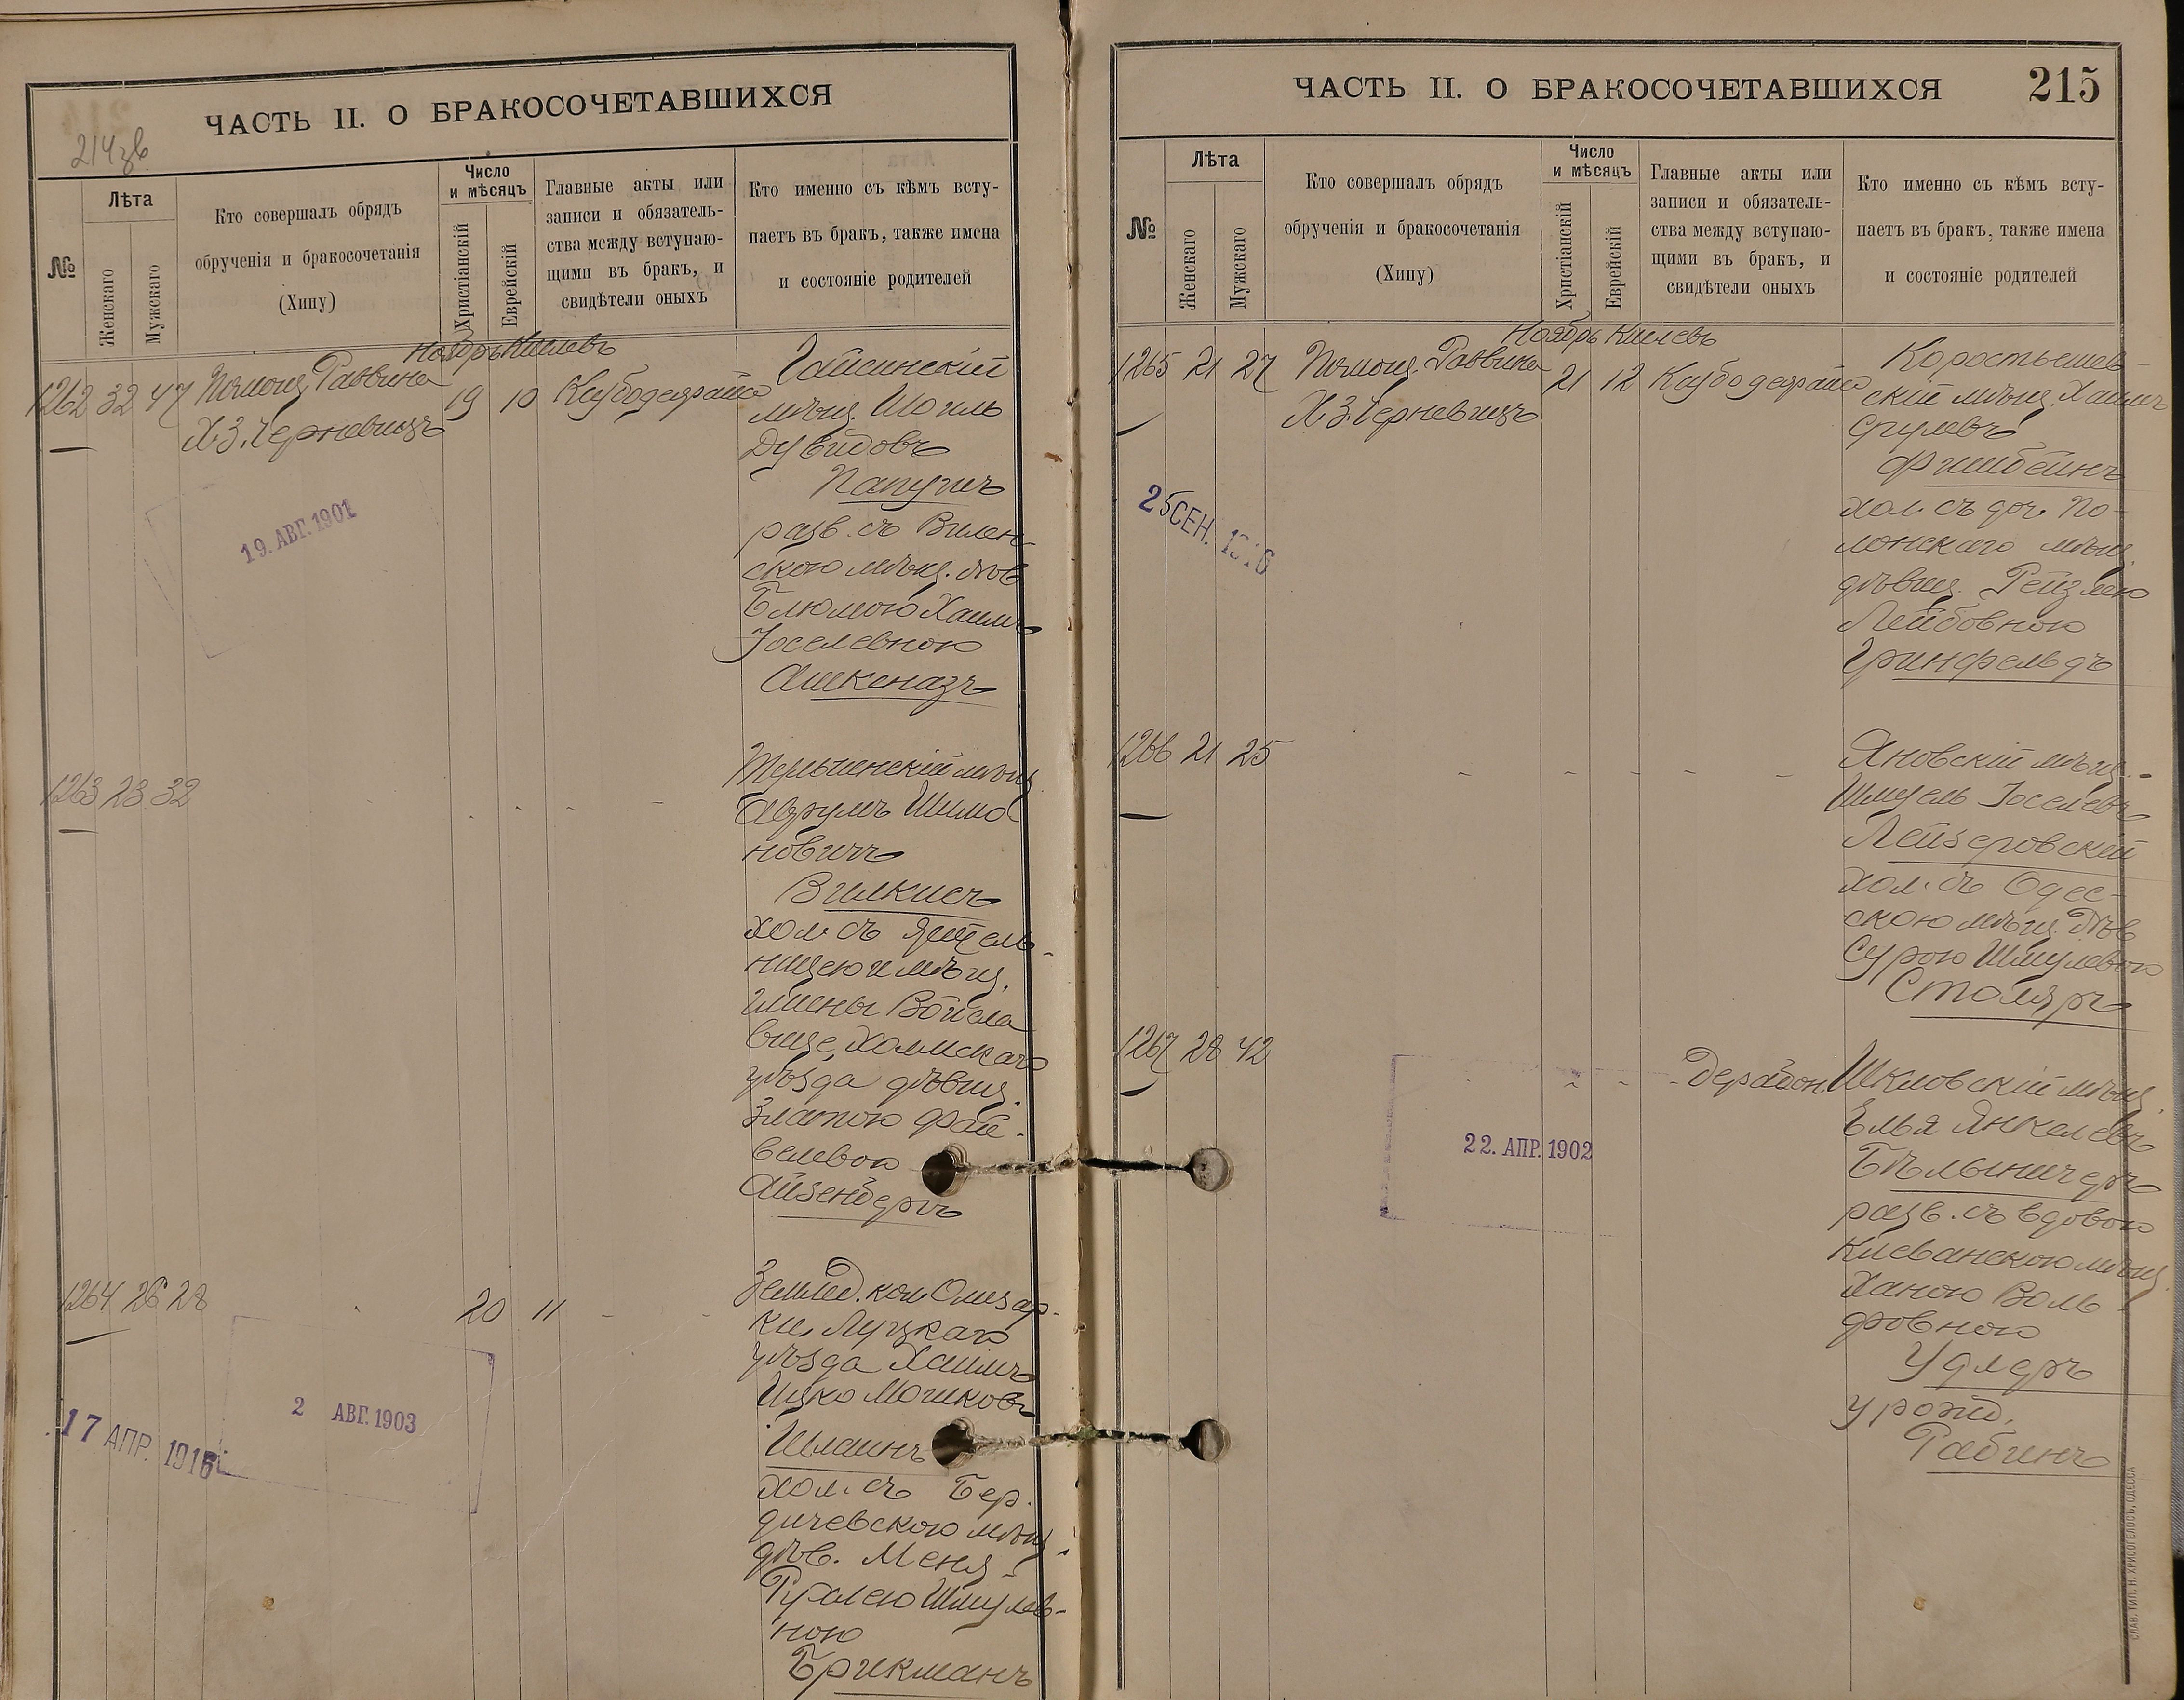 ЧАСТЬ II. О БРАКОСОЧЕТАВШИХСЯ
214 зв
№
Лѣта
Женскаго
Мужскаго
Кто совершалъ обрядъ
обрученія и бракосочетанія
(Хипу)
Число
и мѣсяцъ
Христіанскій
Еврейскій
Главные акты или
записи и обязатель-
ства между вступаю-
щими въ бракъ, и
свидѣтели оныхъ
Кто именно съ кѣмъ всту-
паетъ въ бракъ, также имена
и состояніе родителей
Ноябрь Кислевъ
1262 32 47 Помощ. Раввина 19 10
Х.З. Черневицъ
Гайсинскій
мѣщ. Шоиль
Дувидовъ
Папугичъ
разв. съ Вилен-
скою мѣщ. дѣв
Блюмою Хаимъ
Іоселевною
Ашкеназъ
19. АВГ. 1901
1263 23 32
Тельшенскій мѣщ
Аврумъ Шимо
новичъ
Вилкисъ
хол. съ жител-
ницею и мѣщ.
гмины Войсла
вице, Холмскаго
уѣзда дѣвиц.
Златою Фай-
велевою
Айзенбергъ
1264 26 28 20 11
Землед. кол. Олизар-
ки, Луцкаго
уѣзда Хаимъ
Ицко Мошковъ
хол. съ Бер-
дичевскою мѣщ
дѣв. Меня-
Рухлею Шмулев-
ною
Брикманъ
2 АВГ. 1903
17 АПР. 1916
ЧАСТЬ II. О БРАКОСОЧЕТАВШИХСЯ
215
№
Лѣта
Женскаго
Мужскаго
Кто совершалъ обрядъ
обрученія и бракосочетанія
(Хипу)
Число
и мѣсяцъ
Христіанскій
Еврейскій
Главные акты или
записи и обязатель-
ства между вступаю-
щими въ бракъ, и
свидѣтели оныхъ
Кто именно съ кѣмъ всту-
паетъ въ бракъ, также имена
и состояніе родителей
Ноябрь Кислевъ
1265 21 27 Помощ. Раввина 21 12
Х.З. Черневицъ
Коростышев-
скій мѣщ. Хаимъ
Срулевъ
Фишбейнъ
хол. съ доч. По-
лонскаго мѣщ.
дѣвиц. Рейзлею
Лейбовною
Гринфельдъ
25 СЕН. 1916
1266 21 25
Яновскій мѣщ.
Шмуель Іоселевъ
Лейзеровскій
хол. съ Одес-
скою мѣщ. Дѣв
Сурою Шмулевою
Столяръ
1267 28 42
Шкловскій мѣщ
Елья Янкелевъ
Бѣлыничеръ
разв. съ вдовою
Клеванскою мѣщ
Ханою Воль-
фовною
Удлеръ
урожд.
Рабинъ
22. АПР. 1902
СЛАВ. ТИП. Н. ХРИСОГЕЛОСЪ, ОДЕССА